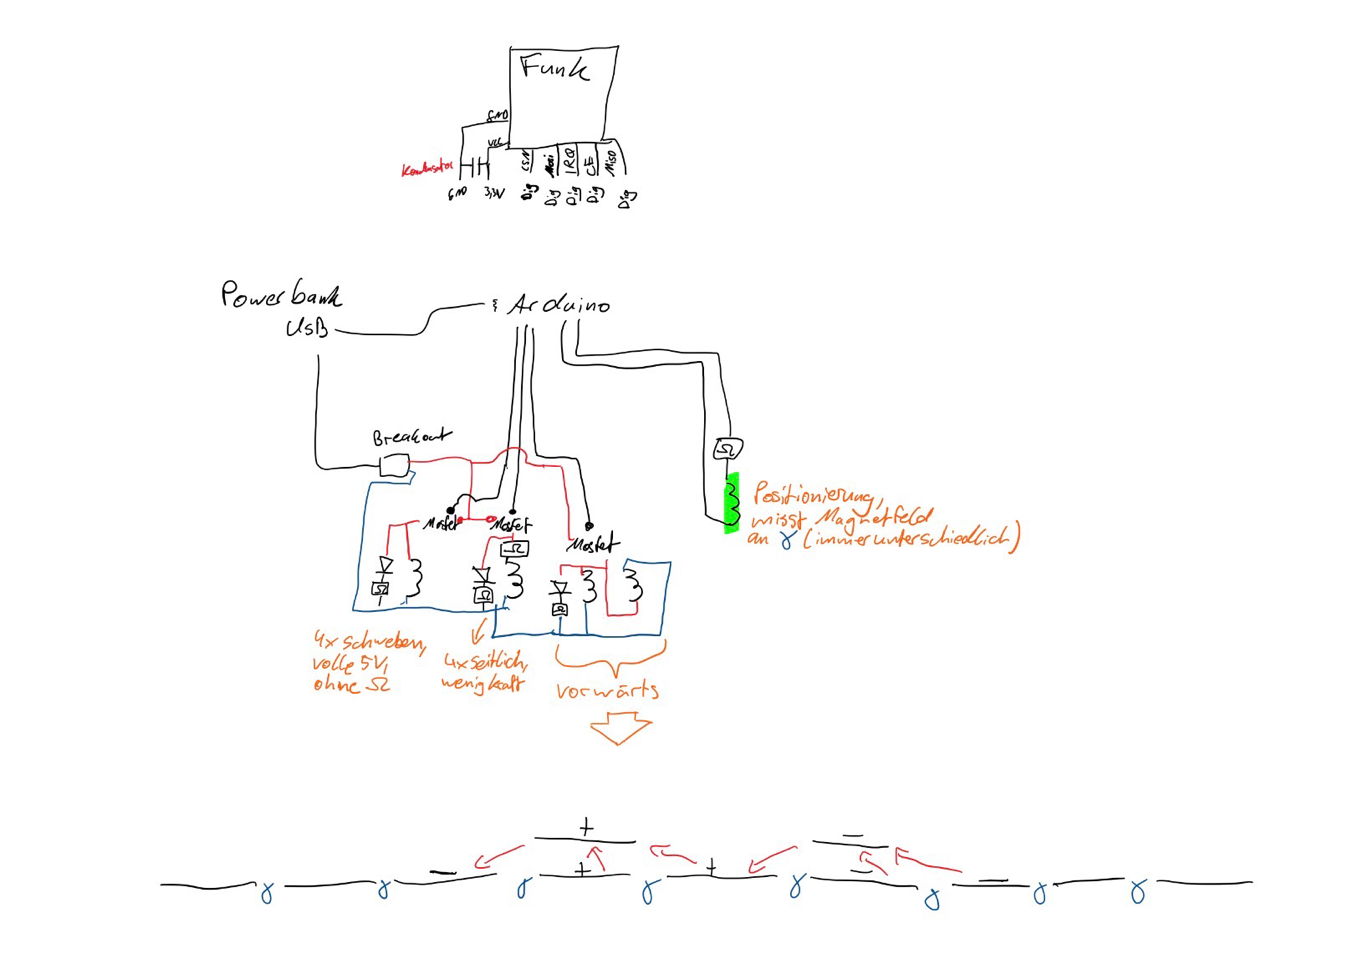 Funk
GND
VCC
Kondensator
CSN
Mosi
IRQ
CE
MISO
GND
3,3V
Dig
Dig
Dig
Dig
Dig
Powerbank
USB
Arduino
Breakout
Ω
Mosfet
Mosfet
Mosfet
Ω
Ω
Ω
Ω
Positionierung,
misst Magnetfeld
an γ (immer unterschiedlich)
4x schweben,
volle 5V,
ohne Ω
4x seitlich,
wenig kraft
vorwärts
+
−
−
+
+
−
−
γ
γ
γ
γ
γ
γ
γ
γ